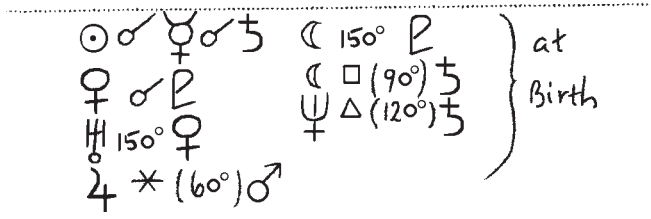 ☉ ☌ ☿ ☌ ♄
♀ ☌ ♇
♅ 150° ♀
♃ ⚹ (60°) ♂
☾ 150° ♇
☾ □ (90°) ♄
♆ △ (120°) ♄
at
Birth